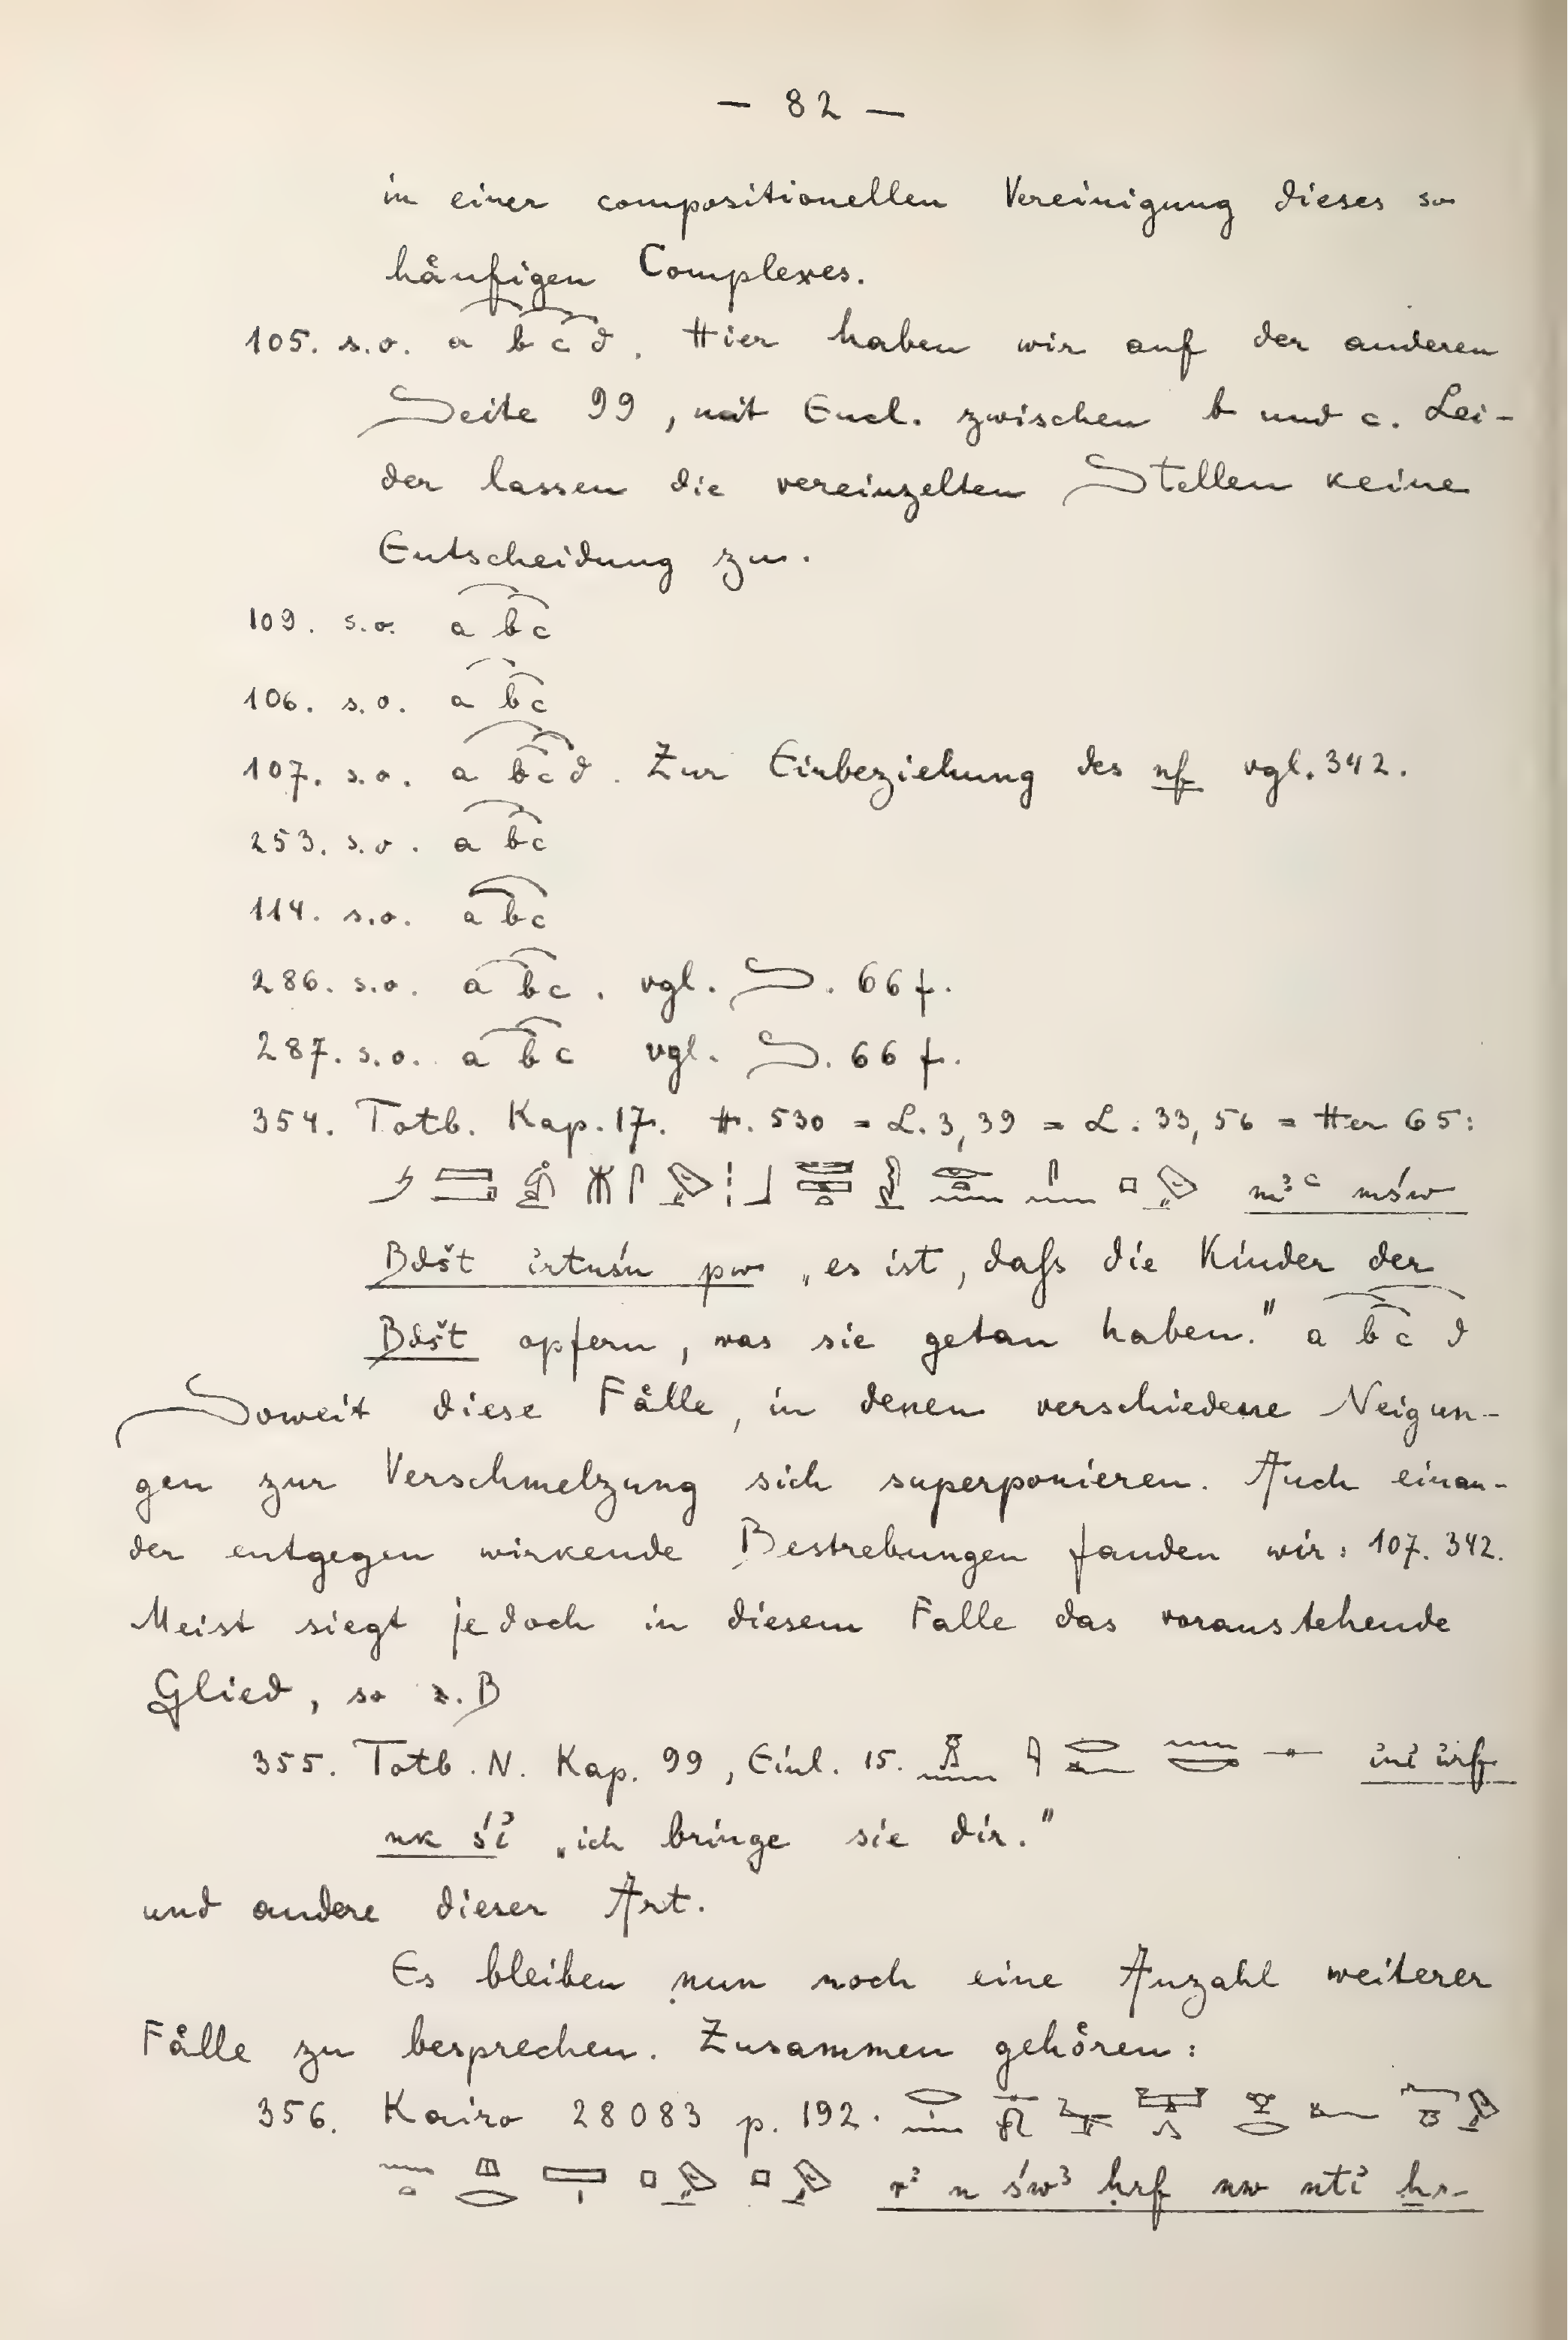 — 82 —
in einer compositionellen Vereinigung dieses so
häufigen Complexes.
105. s.o. a b c d. Hier haben wir auf der anderen
Seite 99, mit Encl. zwischen b und c. Lei-
der lassen die vereinzelten Stellen keine
Entscheidung zu.
109. s.o. a b c
106. s.o. a b c
107. s.o. a b c d. Zur Einbeziehung des nf vgl. 342.
253. s.o. a b c
114. s.o. a b c
286. s.o. a b c. vgl. S. 66 f.
287. s.o. a b c vgl. S. 66 f.
354. Totb. Kap. 17. H. 530 = L. 3, 39 = L. 33, 56 = Her 65:
mꜣꜥ mśw
Bdšt ı͗rtnśn pw „es ist, daſs die Kinder der
Bdšt opfern, was sie getan haben." a b c d
Soweit diese Fälle, in denen verschiedene Neigun-
gen zur Verschmelzung sich superponieren. Auch einan-
der entgegen wirkende Bestrebungen fanden wir: 107. 342.
Meist siegt jedoch in diesem Falle das voranstehende
Glied, so z.B
355. Totb. N. Kap. 99, Einl. 15. ı͗nı͗ ı͗rf
nk śı͗ „ich bringe sie dir."
und andere dieser Art.
Es bleiben nun noch eine Anzahl weiterer
Fälle zu besprechen. Zusammen gehören:
356. Kairo 28083 p. 192.
rꜣ n śwꜣ ḥrf nw ntı͗ ẖr-